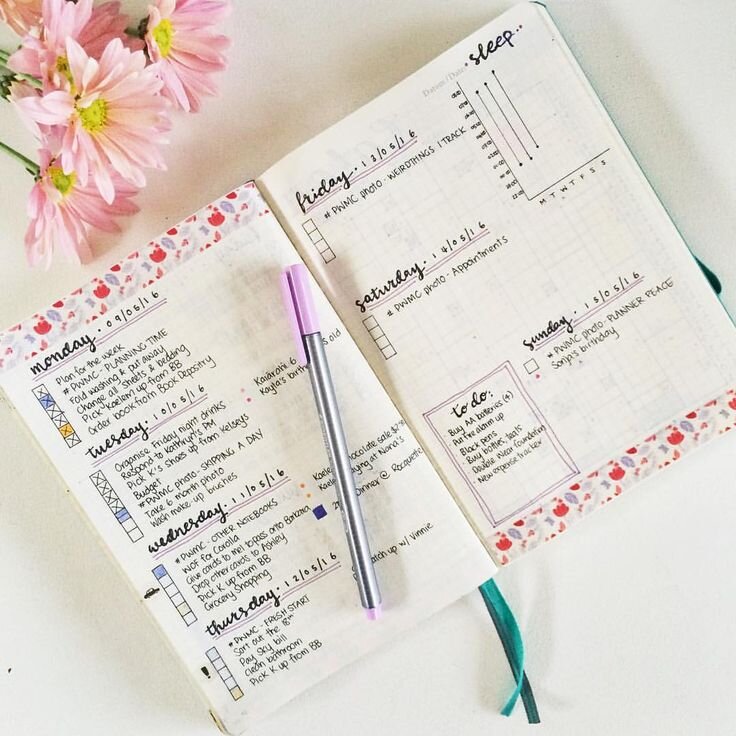 monday. 09/05/16
Plan for the week
# PWMC - PLANNING-TIME
Fold washing & put away
Change all sheets & bedding
Pick Kaelem up from BB
Order book from Book Depositry
tuesday. 10/05/16
Organise Friday night drinks
Respond to Kathryn's PM
Pick K's shoes up from Kelseys
Budget
#PWMC photo - SHOPPING A DAY
Take 6 month photo
Wash make-up brushes
Kalarahi 6 old
Kayla's birth
wednesday. 11/05/16
# PWMC - OTHER NOTEBOOKS
WOF for Corolla
Give cards to mel to pass onto
Drop other cards to Ashley
Pick K up from BB
Grocery Shopping
chocolate sale
staying at Nana's
Dinner @
thursday. 12/05/16
# PWMC - FRESH START
Sort out the
Pay Sky bill
clean bathroom
Pick K up from BB
catch up w/ Vinnie
friday. 13/05/16
# PWMC photo - WEIRD THINGS I TRACK
saturday. 14/05/16
# PWMC photo - Appointments
Datum / Date:
sleep
M T W T F S S
sunday. 15/05/16
# PWMC photo - PLANNER PEACE
Sonja's birthday
to do:
· Buy AA batteries (4)
· Put fire alarm up
· Black pens
· Buy bottles, teats
· Double Wear foundation
· New expense tracker